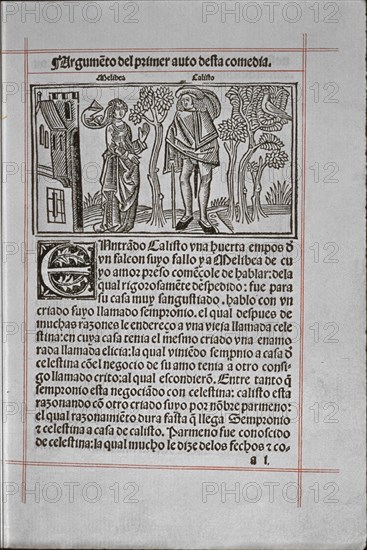 ¶Argumẽto del primer auto desta comedia.
Melibea Calisto
ENtrãdo Calisto vna huerta empos d̃
vn falcon suyo fallo y a Melibea de cu
yo amor preso comẽçole de hablar: dela
qual rigorosamẽte despedido: fue para
su casa muy sangustiado. hablo con vn
criado suyo llamado sempronio. el qual despues de
muchas razones le endereço a vna vieja llamada cele
stina: en cuya casa tenia el mesmo criado vna enamo
rada llamada elicia: la qual viniẽdo sempnio a casa d̃
celestina cõel negocio de su amo tenia a otro consi
go llamado crito: al qual escondierõ. Entre tanto q̃
sempronio esta negociãdo con celestina: calisto esta
razonando cõ otro criado suyo por nõbre parmeno:
el qual razonamiẽto dura fasta q̃ llega Sempronio
⁊ celestina a casa de calisto. Parmeno fue conoscido
de celestina: la qual mucho le dize delos fechos ⁊ co-
a i.
PHOTO12